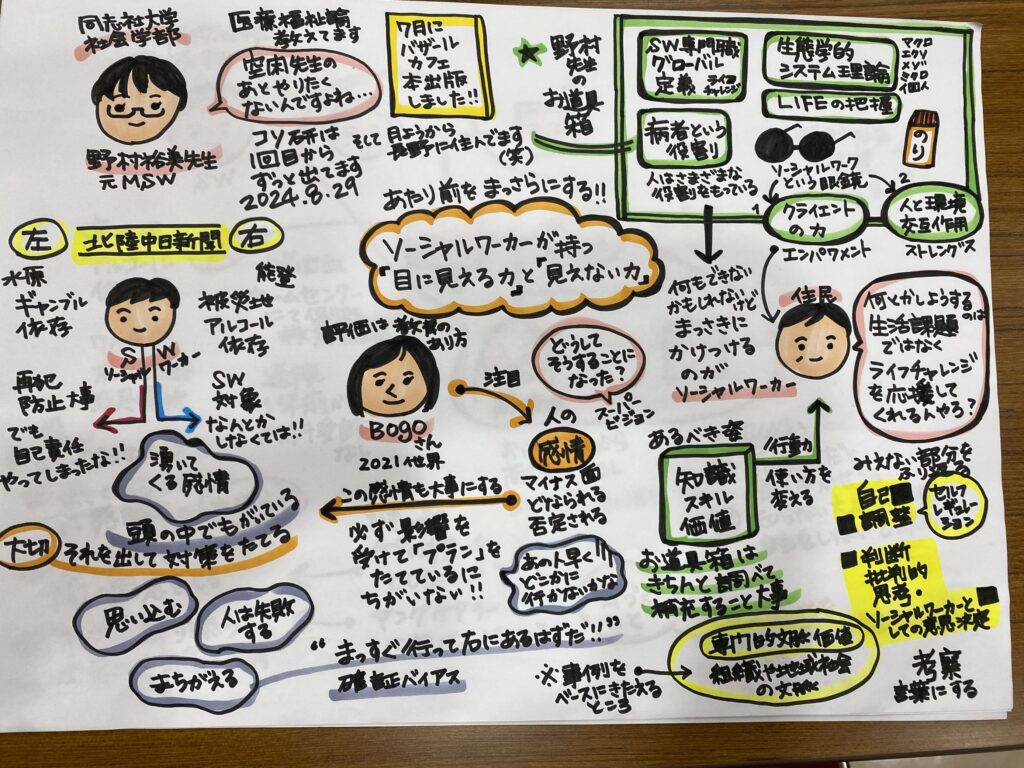 同志社大学
社会学部
医療福祉論
教えてます
空閑先生の
あとやりたく
ないんですよね…
野村裕美先生
元MSW
コソ研は
1回目から
ずっと出てます
2024.8.29
7月に
バザール
カフェ
本出版
しました!!
そして
月ようから
長野に住んでます
(笑)
あたり前をまっさらにする!!
★野村
先生
の
お道具
箱
SW専門職
グローバル
定義
ライフ
チャレンジ
生態学的
システム理論
マクロ
エクソ
メゾ
ミクロ
個人
LIFEの把握
のり
病者という
役割り
人はさまざまな
役割をもっている
ソーシャルワーク
という眼鏡
1
2
クライエント
の力
人と環境
交互作用
エンパワメント
ストレングス
左
北陸中日新聞
右
水原
ギャンブル
依存
能登
被災土地
アルコール
依存
SW
ソーシャルワーカー
再犯
防止大事
でも
自己責任
やってしまったな!!
SW
対象
なんとか
しなくては!!
ソーシャルワーカーが持つ
「目に見える力」と「見えない力」
評価は教員の
あり方
BOGOさん
2021世界
注目
どうして
そうすることに
なった?
スーパー
ビジョン
人の
感情
マイナス面
どなられる
否定される
この感情も大事にする
必ず影響を
受けて「プラン」を
たてているに
ちがいない!!
あの人早く
どこかに
行かないかな
何もできない
かもしれないけど
まっさきに
かけつける
のが
ソーシャルワーカー
住民
何とかしようする
のは
生活課題
ではなく
ライフチャレンジ
を応援して
くれるんやろ?
あるべき姿
知識
スキル
価値
行動
使い方を
変える
お道具箱は
きちんと調べて
補充すること大事
みえない部分を
自己
調整
セルフ
レギュレー
ション
判断
批判的
思考・
ソーシャルワーカーと
しての意思決定
湧いて
くる感情
頭の中でもがいている
大切
それを出して対策をたてる
思い込む
人は失敗
する
まちがえる
“まっすぐ行って右にあるはずだ!!”
確証バイアス
※事例を
ベースにきたえる
ところ
専門的文脈価値
組織や地域社会
の文脈
考察
言葉にする